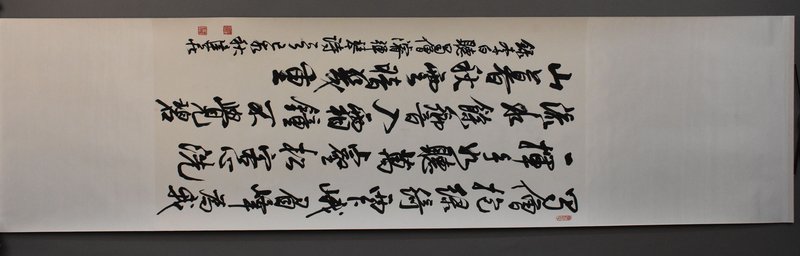 蜀僧抱綠綺西下峨眉峰為我
一揮手如聽萬壑松客心洗
流水餘響入霜鐘不覺碧
山暮秋雲暗幾重
錄李白聽蜀僧濬彈琴詩 亥秋